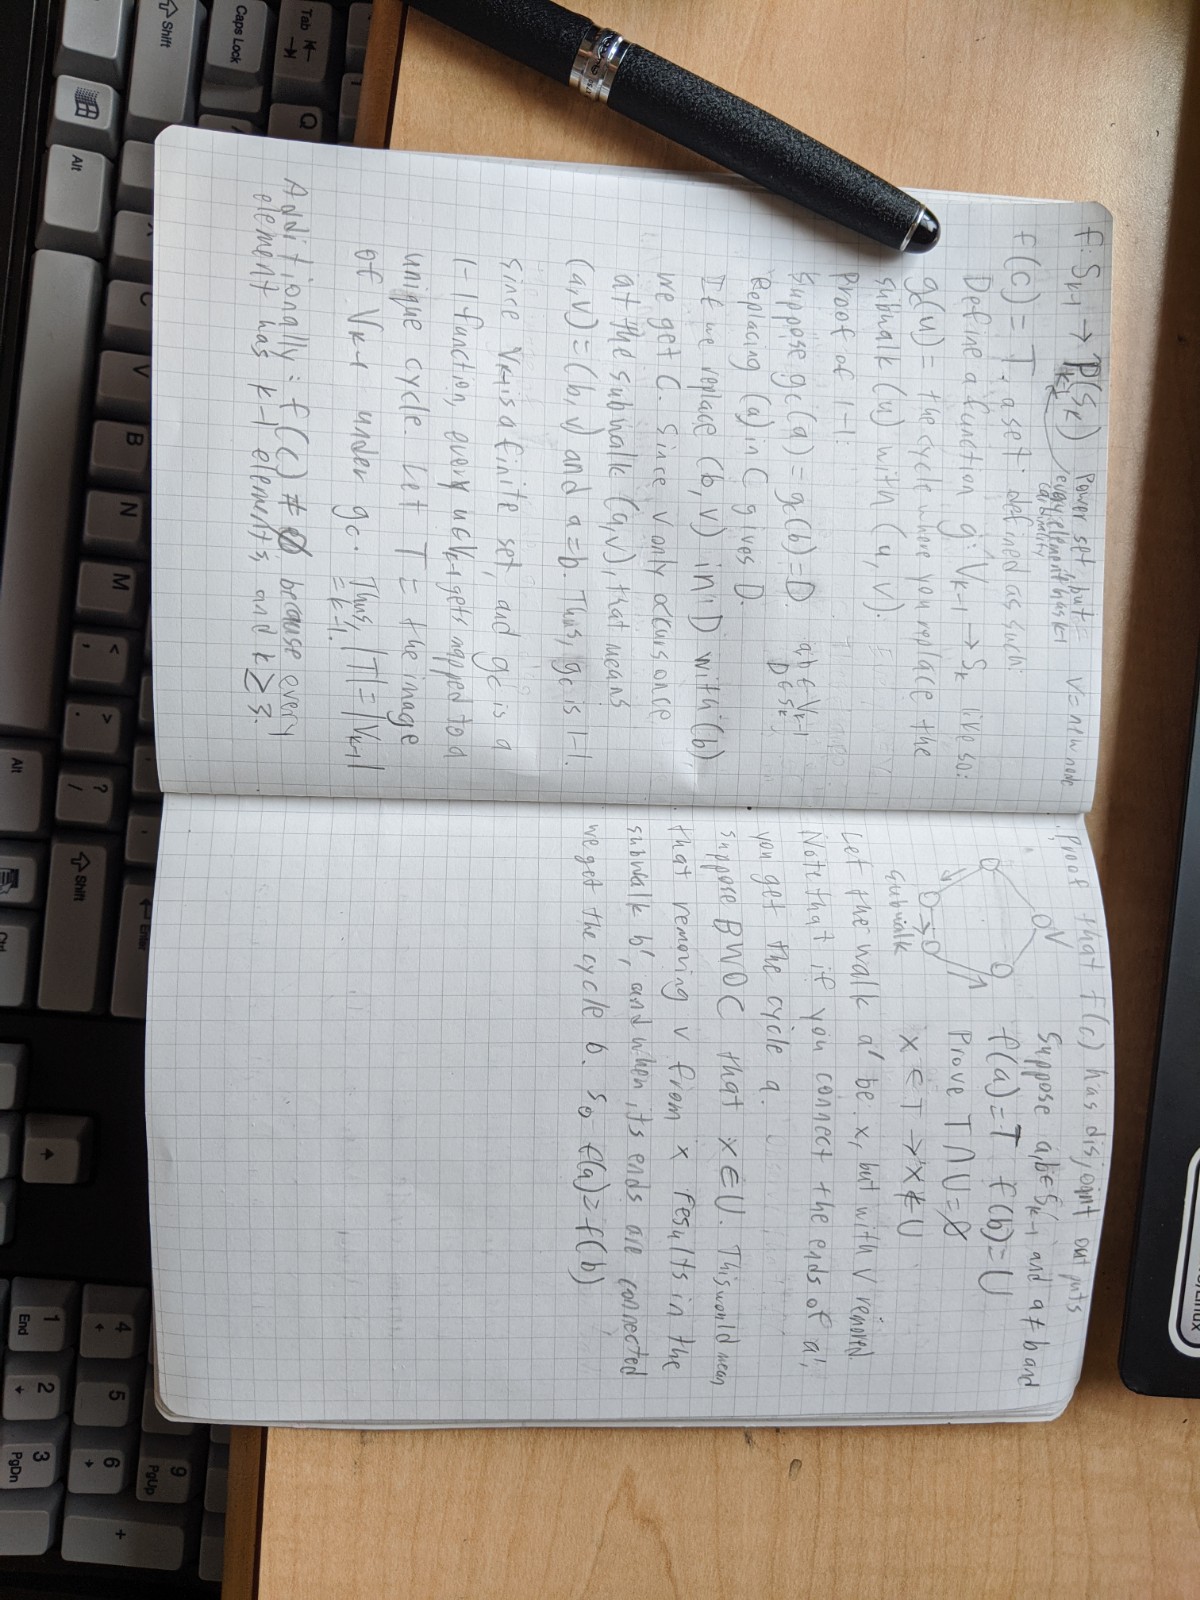 f: Sₖ₋₁ → Pₖ₋₁(Sₖ) Power set, but = v = new node
every element has k-1
cardinality
f(C) = T. a set defined as such:
Define a function g: Vₖ₋₁ → Sₖ like so:
g(u) = the cycle where you replace the
subwalk (u) with (u, v).
Proof of 1-1:
Suppose gc(a) = gc(b) = D. a,b ∈ Vₖ₋₁
D ∈ Sₖ
Replacing (a) in C gives D.
If we replace (b, v) in D with (b),
we get C. Since v only occurs once
at the subwalk (a,v), that means
(a,v) = (b,v) and a=b. Thus, gc is 1-1.
Since Vₖ₋₁ is a finite set, and gc is a
1-1 function, every u∈Vₖ₋₁ gets mapped to a
unique cycle. Let T = the image
of Vₖ₋₁ under gc. Thus, |T| = |Vₖ₋₁|
= k-1.
Additionally: f(C) ≠ ∅ because every
element has k-1 elements, and k ≥ 3.
Proof that f(c) has disjoint outputs
Suppose a,b∈Sₖ₋₁ and a≠b and
f(a)=T f(b)=U
Prove T∩U=∅
x∈T → x∉U
v
subwalk
Let the walk a' be: x, but with v removed
Note that if you connect the ends of a',
you get the cycle a.
Suppose BWOC that x∈U. This would mean
that removing v from x results in the
subwalk b', and when its ends are connected
we get the cycle b. So f(a)=f(b)
Tab
Q
Caps Lock
Shift
Alt
C
V
B
N
M
<
,
>
.
?
/
Alt
Shift
Enter
Ctrl
1
End
2
3
PgDn
4
5
6
9
PgUp
+